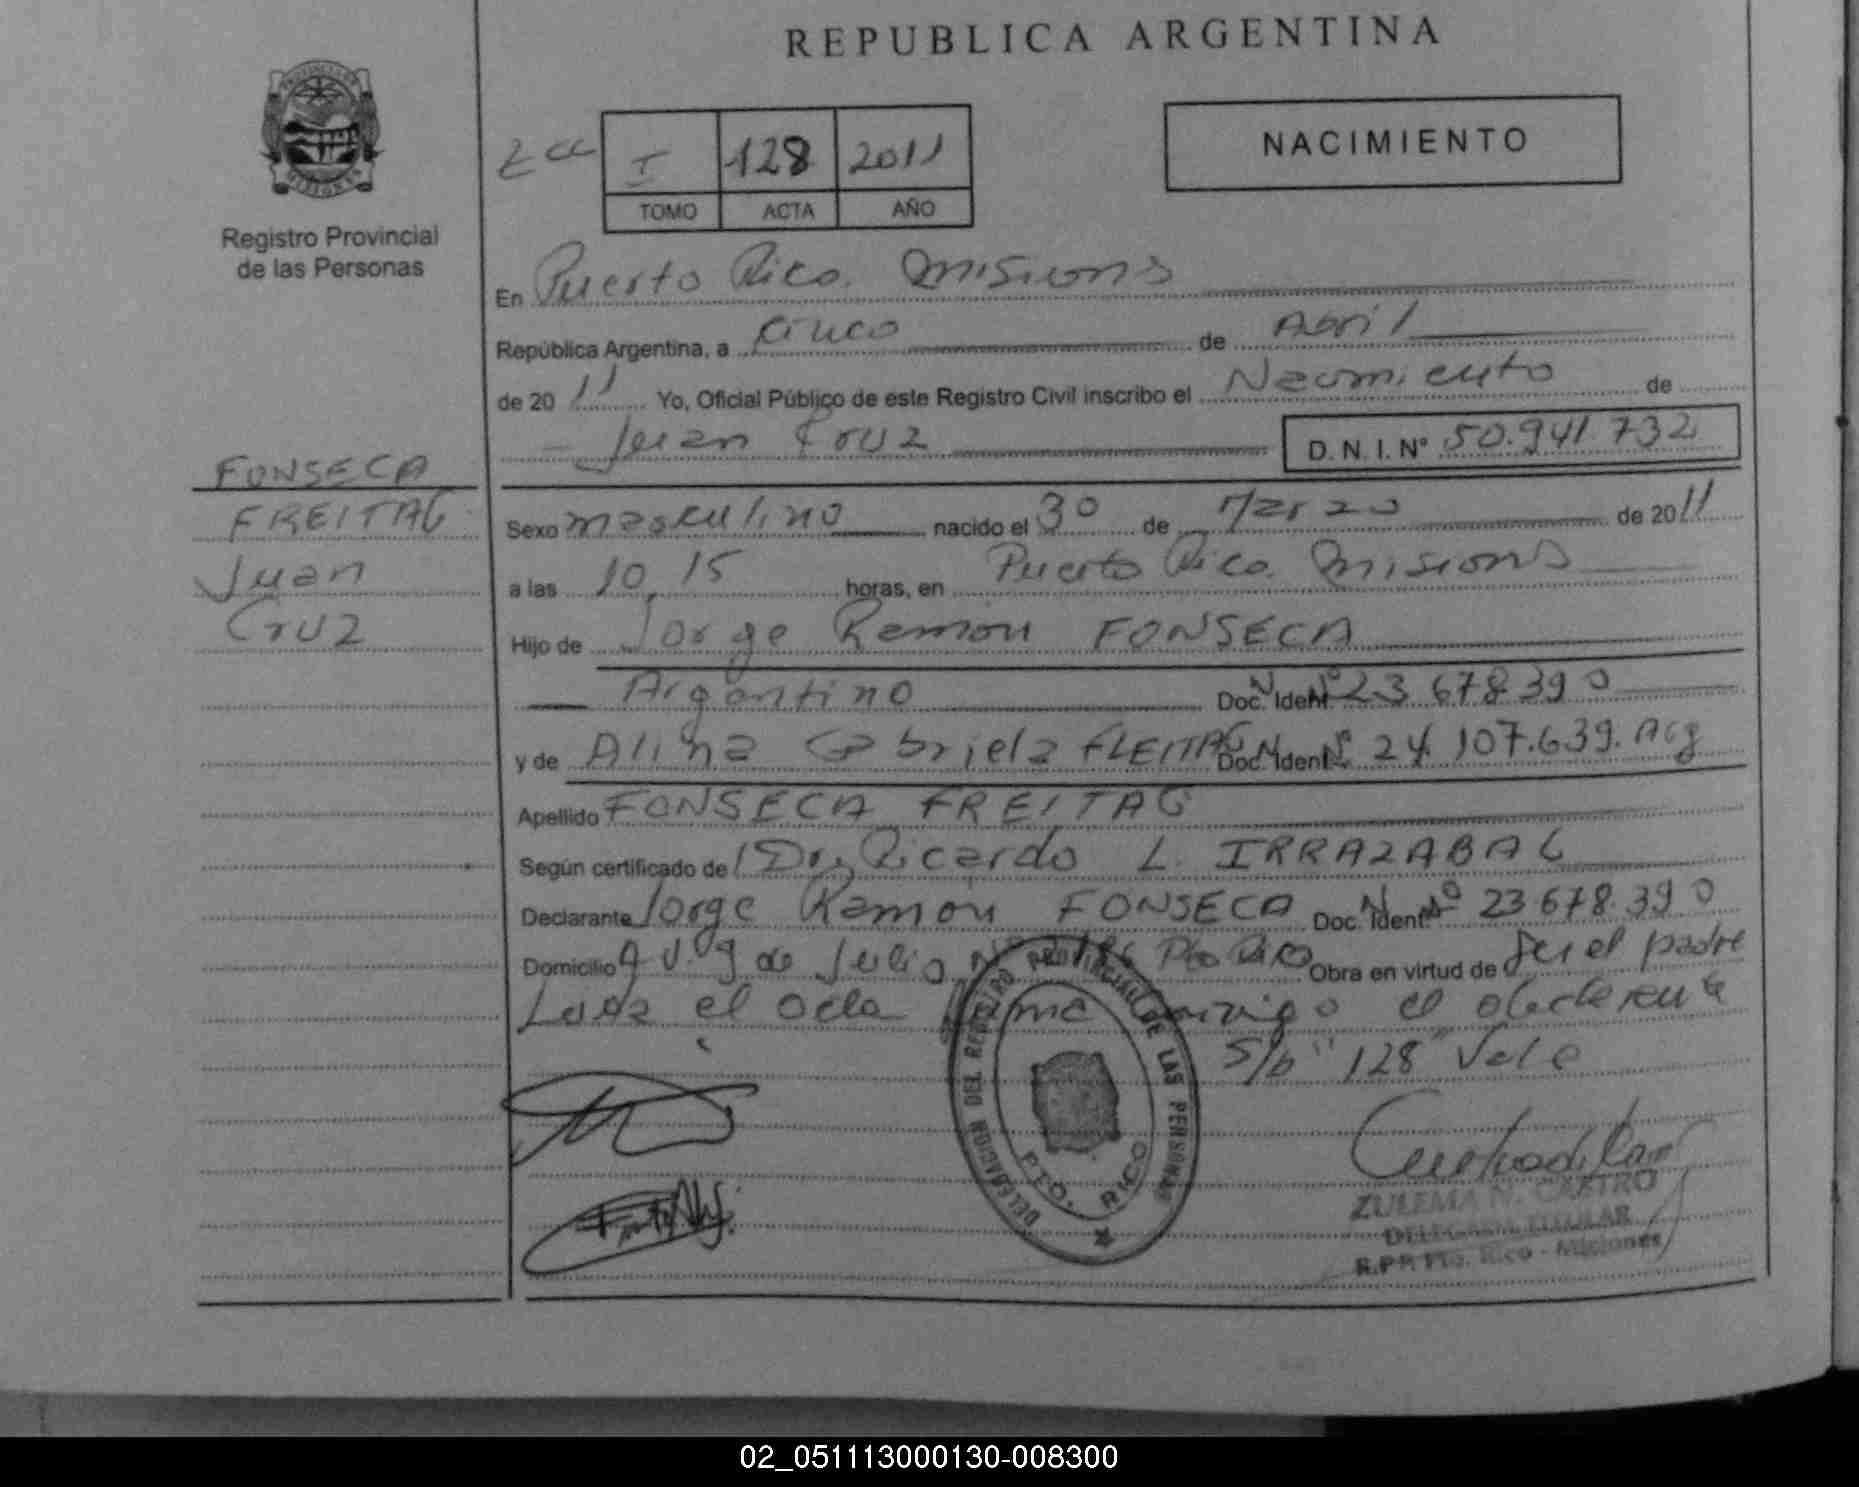 REPUBLICA ARGENTINA
PROVINCIA DE
MISIONES
Registro Provincial
de las Personas
I 128 2011
TOMO ACTA AÑO
NACIMIENTO
En Puerto Rico. Misions
República Argentina, a cinco de Abril
de 2011 Yo, Oficial Público de este Registro Civil inscribo el Nacimiento de
Juan Cruz D. N. I. Nº 50.941.732
FONSECA
FREITAG
Juan
Cruz
Sexo masculino nacido el 30 de Marzo de 2011
a las 10,15 horas, en Puerto Rico. Misions
Hijo de Jorge Ramon FONSECA
Argentino Doc. Ident. Nº 23 678 390
y de Alina Gabriela FLEITAG Doc. Ident. Nº 24.107.639. Arg
Apellido FONSECA FREITAG
Según certificado de Dr. Ricardo L. IRRAZABAL
Declarante Jorge Ramon FONSECA Doc. Ident. Nº 23 678.390
Domicilio Av. 9 de Julio Pto Rico Obra en virtud de ser el padre
el acta conmigo el declarente
S/b "128" Vale
DELEGACION DEL REGISTRO PROVINCIAL DE LAS PERSONAS
PTO. RICO
ZULEMA N. CASTRO
DELEGADA TITULAR
R.P.P. Pto. Rico - Misiones
02_051113000130-008300